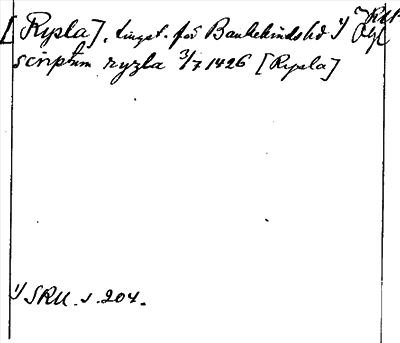 [Rypla], tingst. för Bankekinds hd 1) SRU
scriptum ryzla 3/7 1426 [Rypla]
1) SRU. s. 204.